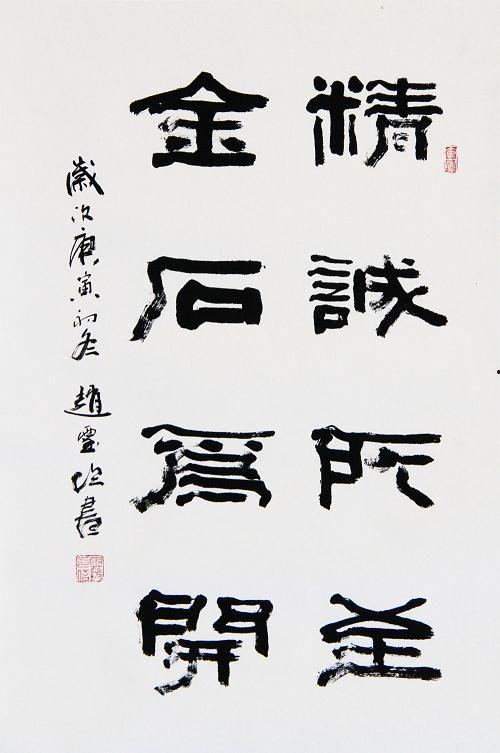 精誠所至
金石爲開
歲次庚寅初冬 趙雲書